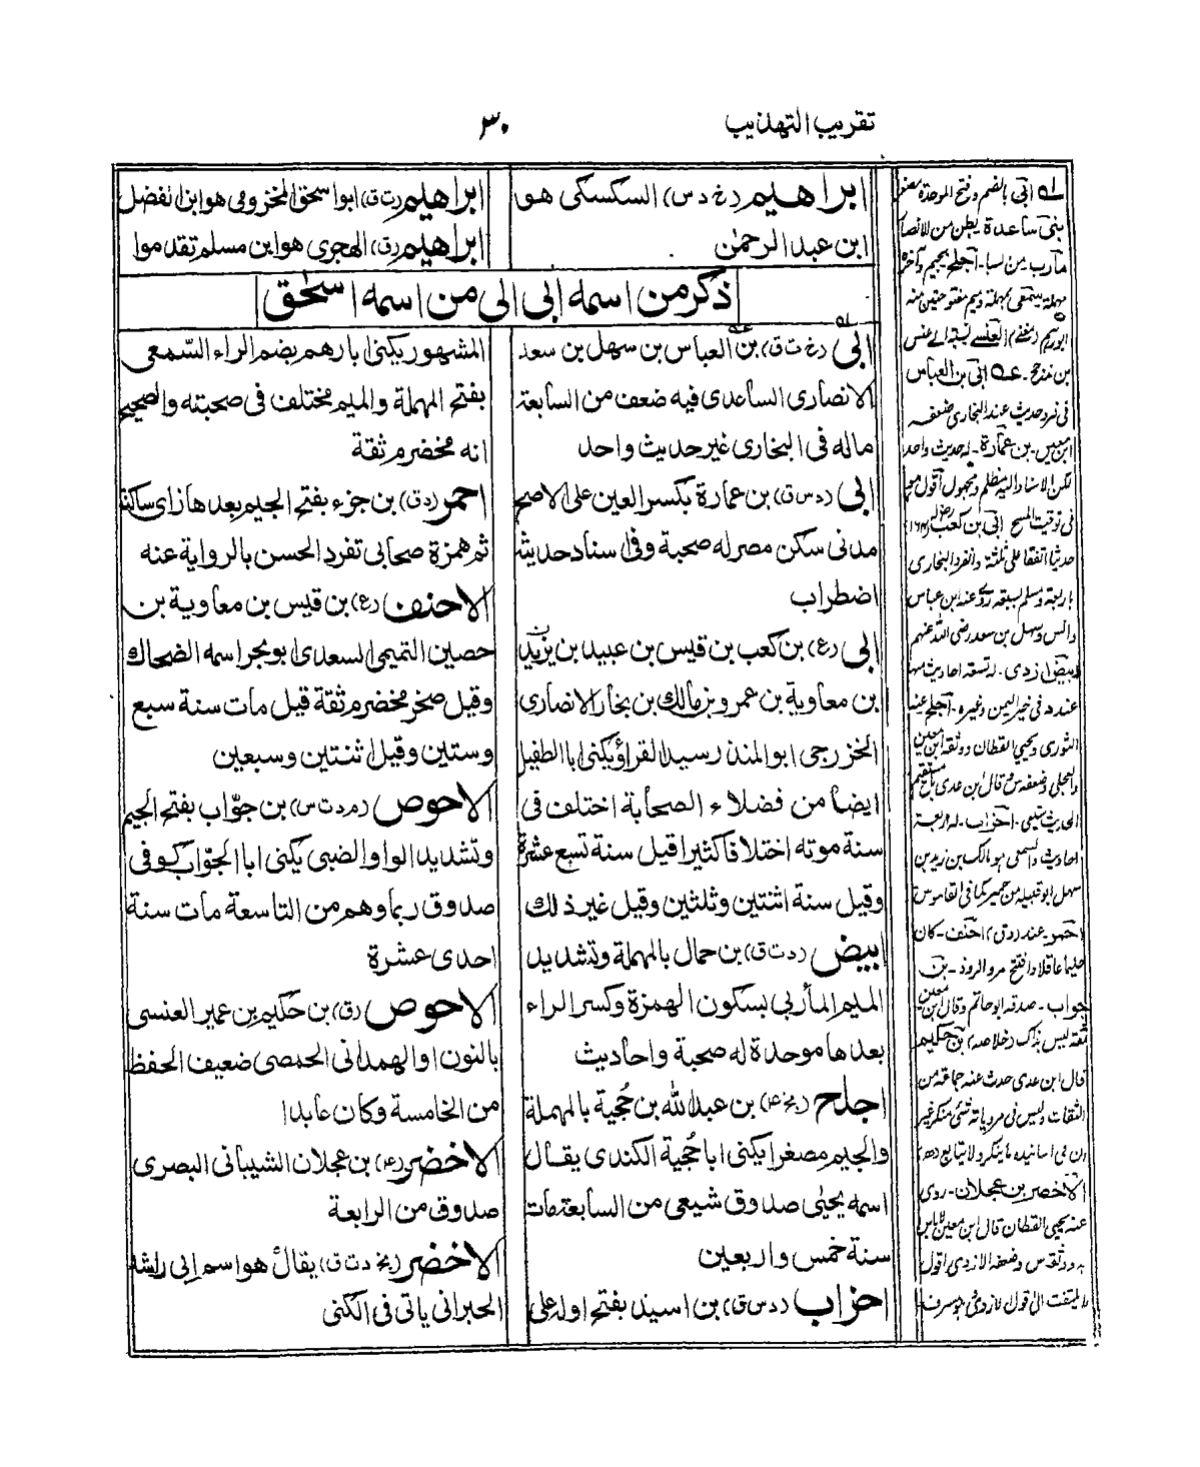 تقريب التهذيب
٣٠
ابراهيم (خ د س) السكسكى هو
ابن عبد الرحمٰن
ابراهيم (ت ق) ابو اسحق المخزومى هو ابن الفضل
ابراهيم (ق) الهجرى هو ابن مسلم تقدموا
ذكر من اسمه ابى الى من اسمه اسحٰق
ابى (خ ت ق) بن العباس بن سهل بن سعد
الانصارى الساعدى فيه ضعف من السابعة
ماله فى البخارى غير حديث واحد
ابى (د س ق) بن عمارة بكسر العين على الاصح
مدنى سكن مصر له صحبة وفى اسناد حديثه
اضطراب
ابى (ع) بن كعب بن قيس بن عبيد بن زيد
بن معاوية بن عمرو بن مالك بن نجار الانصارى
الخزرجى ابو المنذر سيد القراء ويكنى ابا الطفيل
ايضا من فضلاء الصحابة اختلف فى
سنة موته اختلافا كثيرا قيل سنة تسع عشرة
وقيل سنة اثنتين وثلثين وقيل غير ذلك
ابيض (د ت ق) بن حمال بالمهملة وتشديد
الميم المأربى بسكون الهمزة وكسر الراء
بعدها موحدة له صحبة واحاديث
اجلح (بخ عم) بن عبد الله بن حُجية بالمهملة
والجيم مصغرا يكنى ابا حُجية الكندى يقال
اسمه يحيٰى صدوق شيعى من السابعة مات
سنة خمس واربعين
احزاب (د س ق) بن اسيد بفتح اوله على
المشهور يكنى ابا رهم بضم الراء السّمعى
بفتح المهملة والميم مختلف فى صحبته والصحيح
انه مخضرم ثقة
احمر (د ق) بن جزء بفتح الجيم بعدها زاى ساكنة
ثم همزة صحابى تفرد الحسن بالرواية عنه
الاحنف (ع) بن قيس بن معاوية بن
حصين التميمى السعدى ابو بحر اسمه الضحاك
وقيل صخر مخضرم ثقة قيل مات سنة سبع
وستين وقيل اثنتين وسبعين
الاحوص (م د ت س) بن جوّاب بفتح الجيم
وتشديد الواو الضبى يكنى ابا الجوّاب كوفى
صدوق ربما وهم من التاسعة مات سنة
احدى عشرة
الاحوص (ق) بن حكيم بن عمير العنسى
بالنون او الهمدانى الحمصى ضعيف الحفظ
من الخامسة وكان عابدا
الاخضر (عم) بن عجلان الشيبانى البصرى
صدوق من الرابعة
الاخضر (بخ د ت ق) يقال هو اسم ابى راشد
الحبرانى ياتى فى الكنى
له ابى بالضم وفتح الموحدة
بنى ساعدة بطن من الانصار
مأرب من سبا- اجلح بجيم وآخره
مهملة
بن مذحج - عه ابى بن العباس
فرد حديث عند البخارى ضعفه
ابن معين- بن عمارة- له حديث واحد
لكن الاسناد اليه مظلم ومجهول اقول
فى توقيت المسح ابى بن كعب
حديثا اتفقا على ثلثة وانفرد البخارى
باربعة ومسلم بسبعة روى عنه ابن عباس
وانس وسهل بن سعد رضى الله عنهم
الثورى ويحيى القطان ووثقه ابن معين
والعجلى وضعفه س وقال ابن عدى
الحديث شيعى - احزاب-
احاديث والسمعى
سهل ابو قبيلة من حمير كما فى القاموس
احمر- عند (د ق) احنف- كان
حليما عاقلا وافتتح مرو الروذ - بن
جواب- صدقه ابو حاتم وقال بن معين
ثقة ليس بذاك (خلاصه) بن حكيم
قال ابن عدى حدث عنه جماعة من
الثقات وليس فى مروياته شئ منكر غير
ان فى اسانيده ما ينكر ولا يتابع
الاخضر بن عجلان- روى
عنه يحيى القطان قال ابن معين لا باس
به ووثقه س وضعفه الازدى اقول
لا يلتفت الى قول الازدى